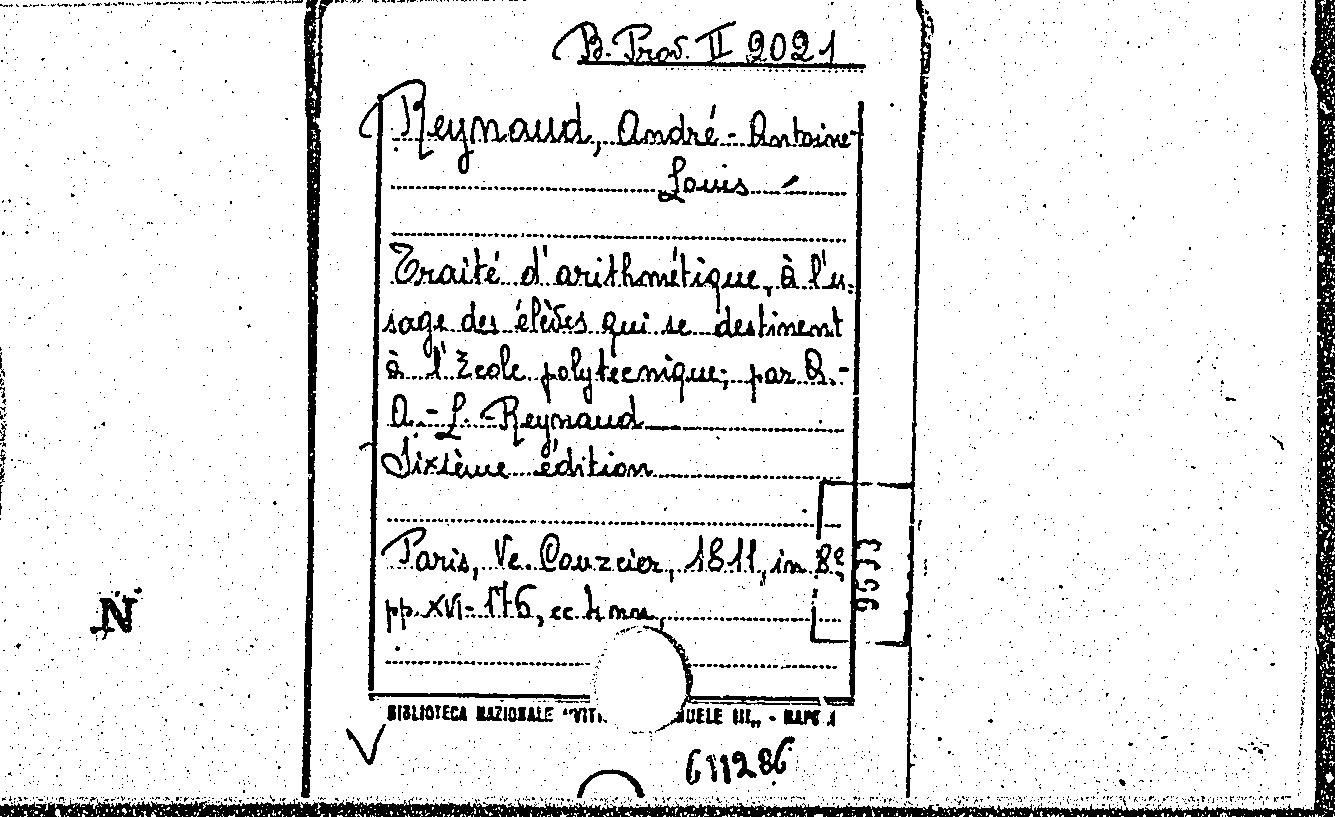 B. Prov. II 2021
Reynaud, André-Antoine-
Louis
Traité d'arithmétique, à l'u-
sage des élèves qui se destinent
à l'École polytecnique; par A.-
A.-L. Reynaud
Sixième édition
Paris, Ve. Couzcier, 1811, in 8°
pp. XVI-176, cc 4 nn,
9533
N
BIBLIOTECA NAZIONALE "VITT NUELE III„ - NAPOLI
611286